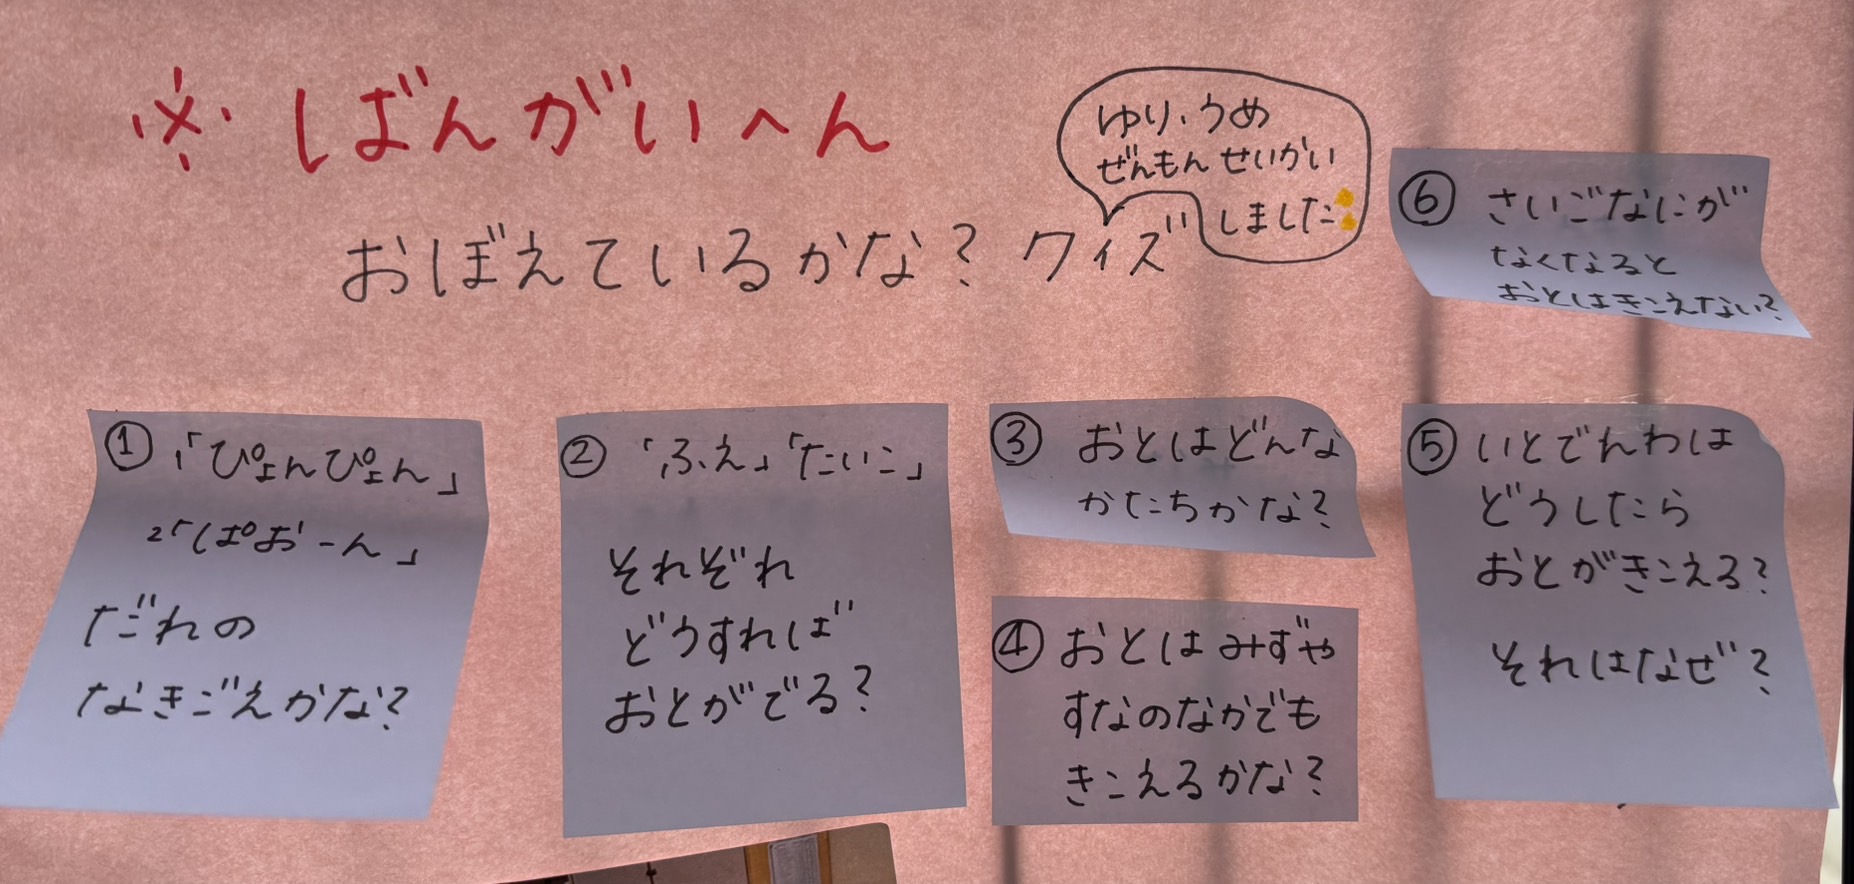 ※ しばんがいへん
おぼえているかな? クイズ
ゆり・うめ
ぜんもん せいかい
しました
① 1「ぴょんぴょん」
2「ぱおーん」
だれの
なきごえかな?
② 「ふえ」「たいこ」
それぞれ
どうすれば
おとがでる?
③ おとはどんな
かたちかな?
④ おとはみずや
すなのなかでも
きこえるかな?
⑤ いとでんわは
どうしたら
おとがきこえる?
それはなぜ?
⑥ さいごなにが
なくなると
おとはきこえない?